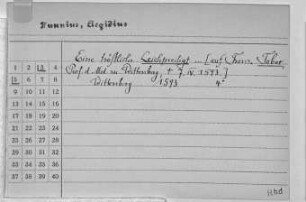 Hunnius, Aegidius
Eine tröstliche Leichpredigt ... [auf Thom. Faber,
Prof. d. Med. in Wittenberg, † 7. IV. 1593.]
Wittenberg 1593 4°
1 2 3 4
5 6 7 8
9 10 11 12
13 14 15 16
17 18 19 20
21 22 23 24
25 26 27 28
29 30 31 32
33 34 35 36
37 38 39 40